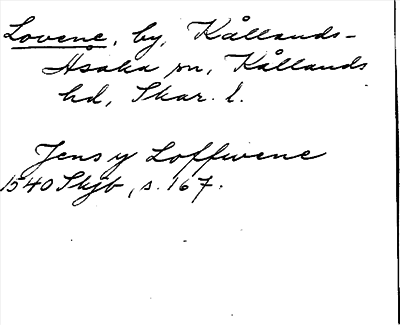 Lovene, by, Kållands-
Åsaka sn, Kållands
hd, Skar. l.
Jens y Loffwene
1540 Skjb, s. 167.